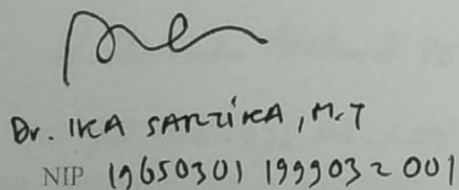 Dr. IKA SARTIKA, M.T
NIP 19650301 199903 2 001